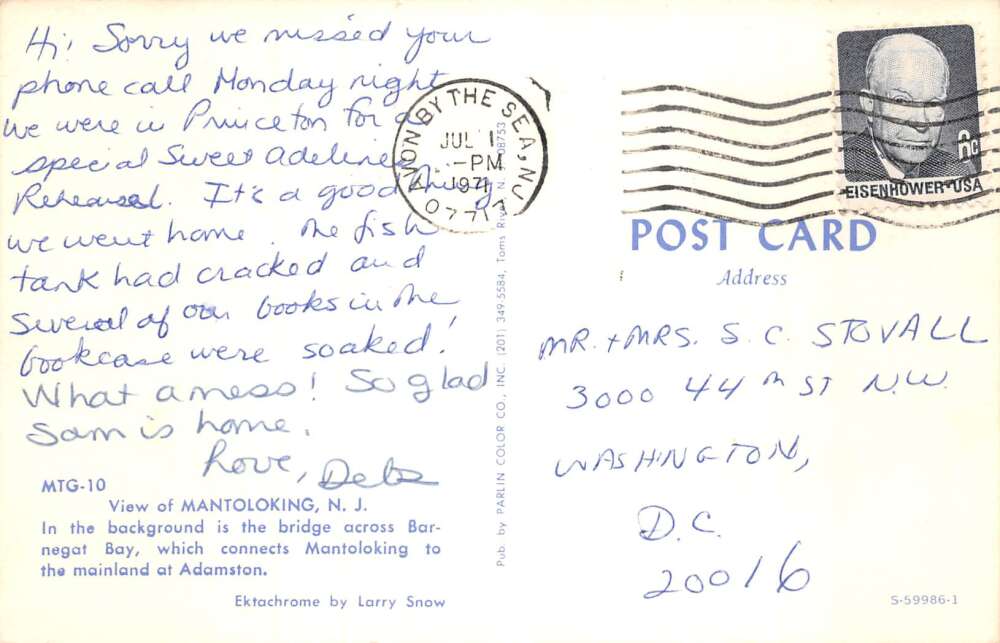 Hi! Sorry we missed your
phone call Monday night
we were in Princeton for a
special Sweet Adelines
Rehearsal. It's a good thing
we went home. The fish
tank had cracked and
several of our books in the
bookcase were soaked!
What a mess! So glad
Sam is home.
Love, Debs
MTG-10
View of MANTOLOKING, N. J.
In the background is the bridge across Bar-
negat Bay, which connects Mantoloking to
the mainland at Adamston.
Ektachrome by Larry Snow
Pub. by PARLIN COLOR CO., INC. (201) 349-5584, Toms River, N. J. 08753
AVON BY THE SEA, N.J.
JUL 1
-PM
1971
07717
6c
EISENHOWER·USA
POST CARD
Address
MR. + MRS. S. C. STOVALL
3000 44th ST N.W.
WASHINGTON,
D.C.
20016
S-59986-1